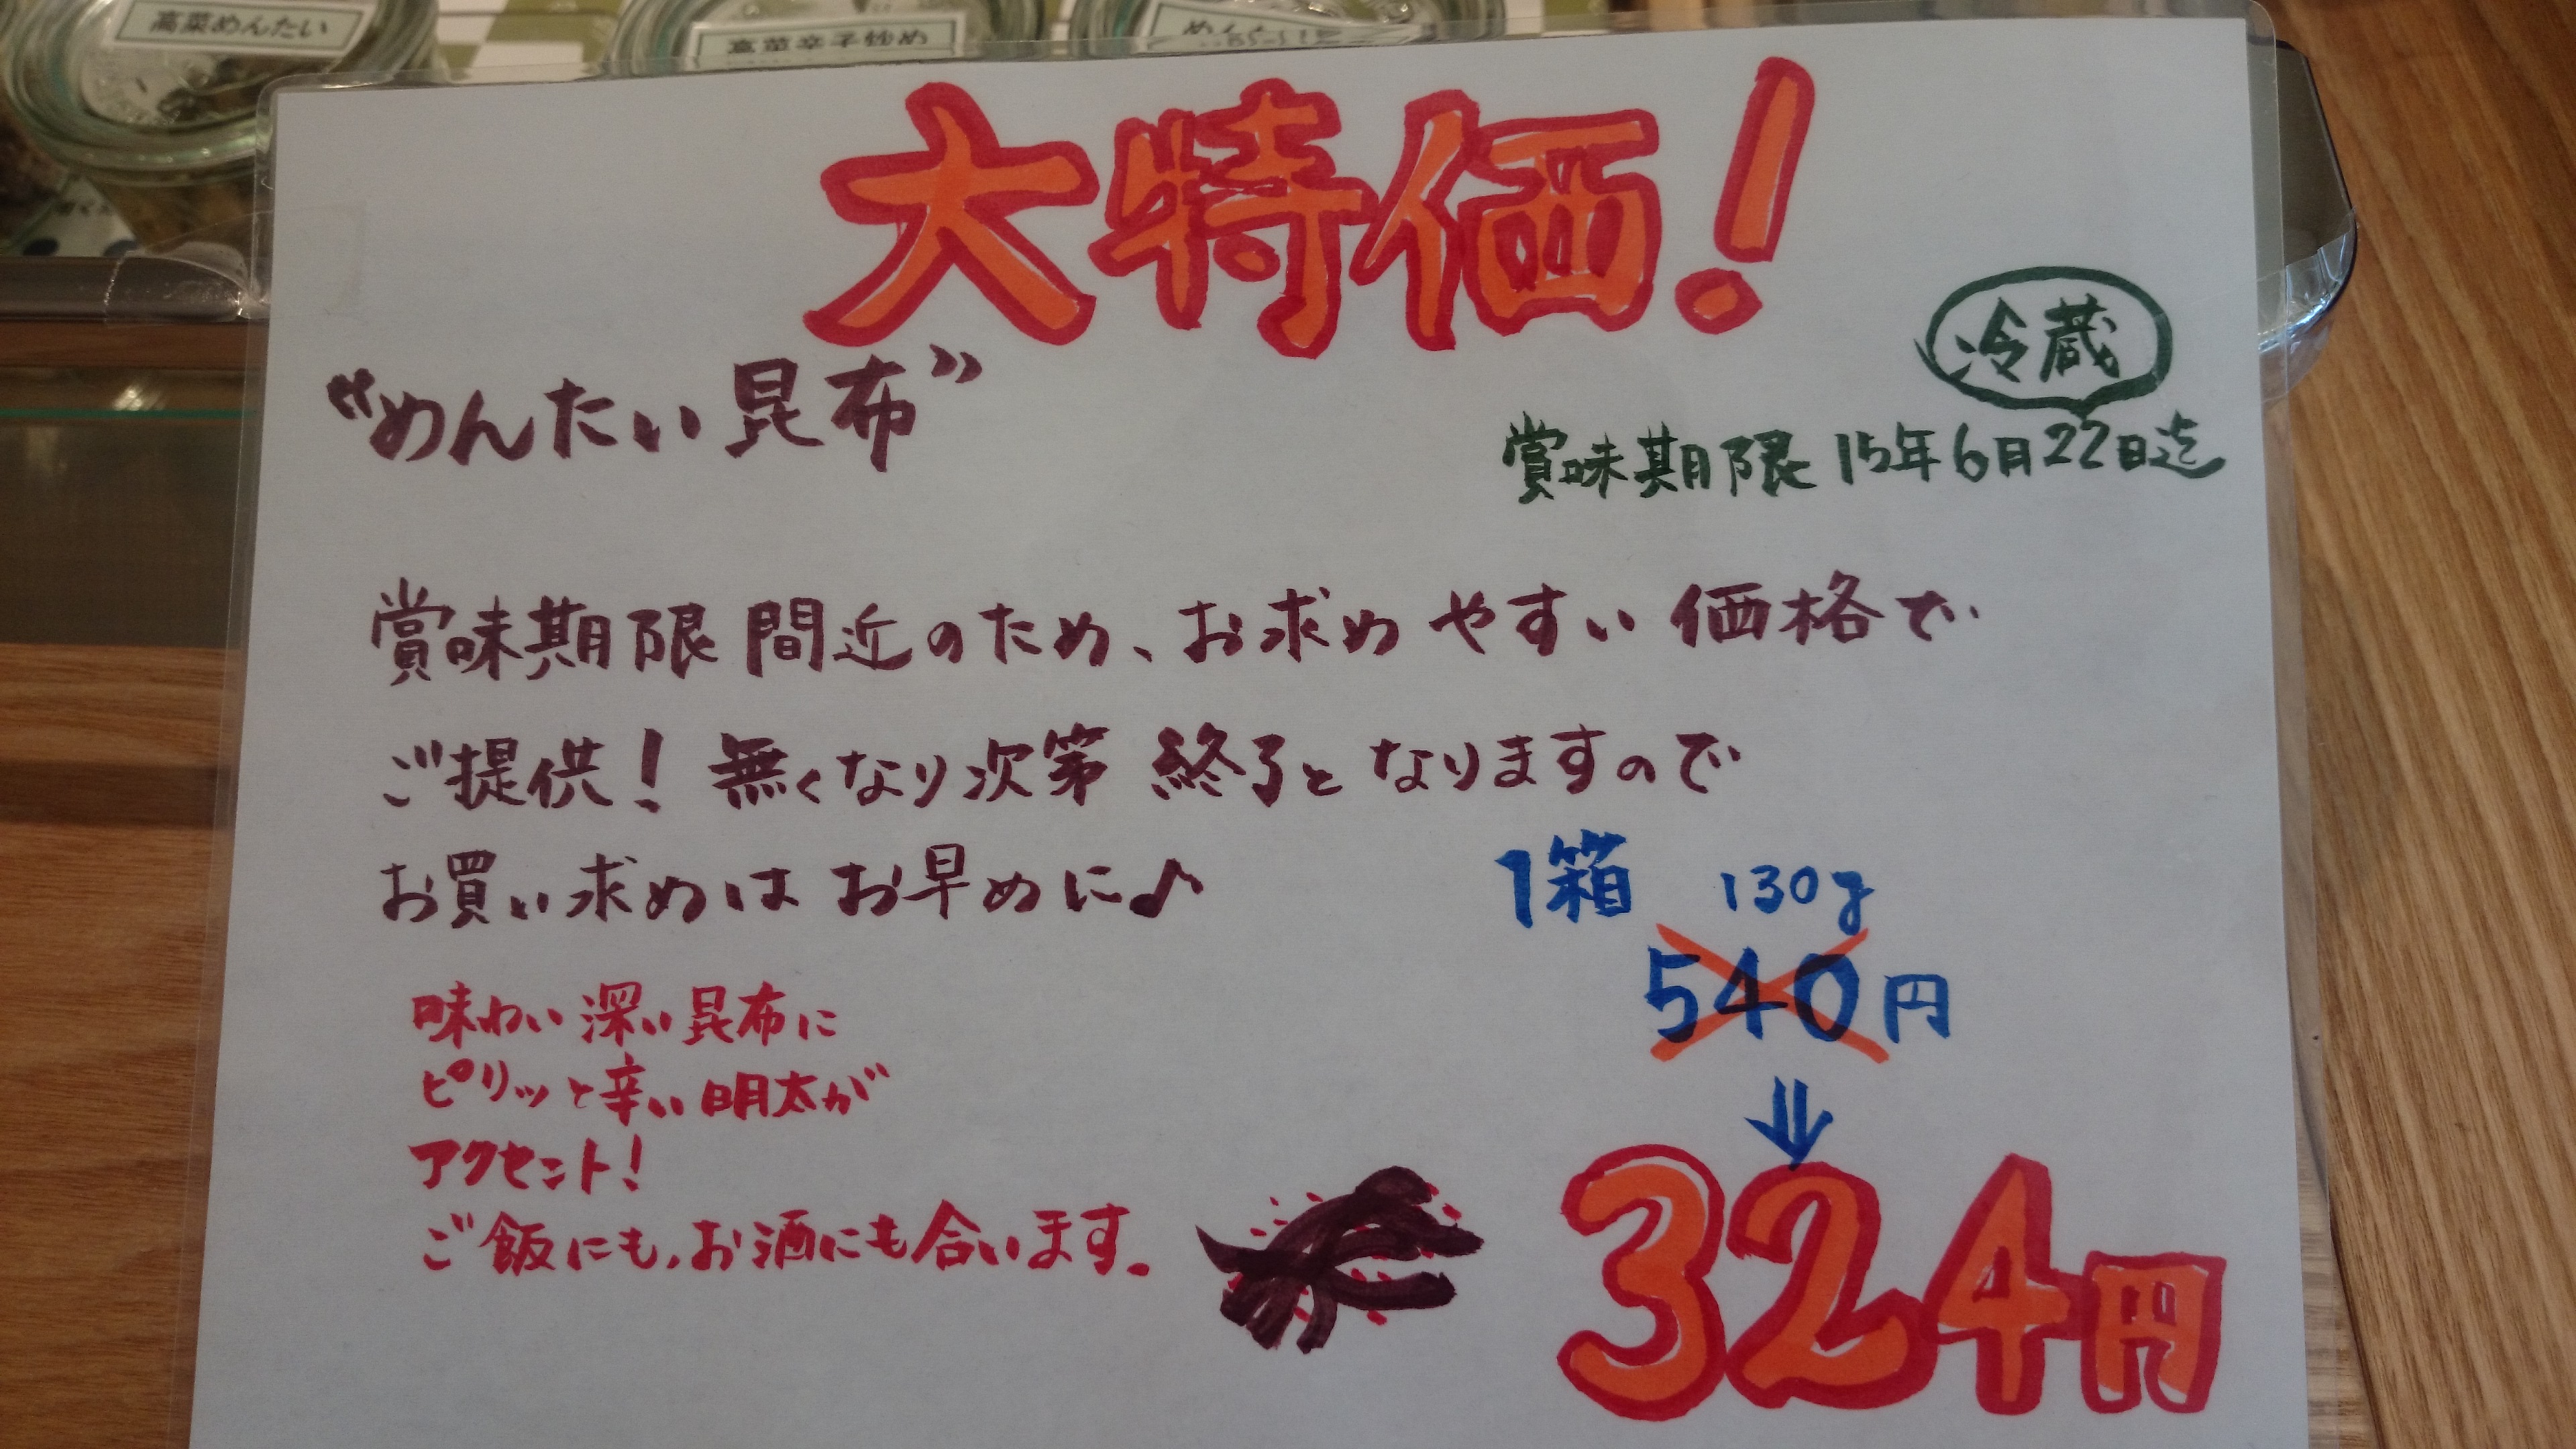 高菜めんたい
高菜辛子炒め
大特価!
冷蔵
“めんたい昆布”
賞味期限15年6月22日迄
賞味期限間近のため、お求めやすい価格で
ご提供!無くなり次第終了となりますので
お買い求めはお早めに♪
1箱 130g
540円
⇓
324円
味わい深い昆布に
ピリッと辛い明太が
アクセント!
ご飯にも、お酒にも合います。